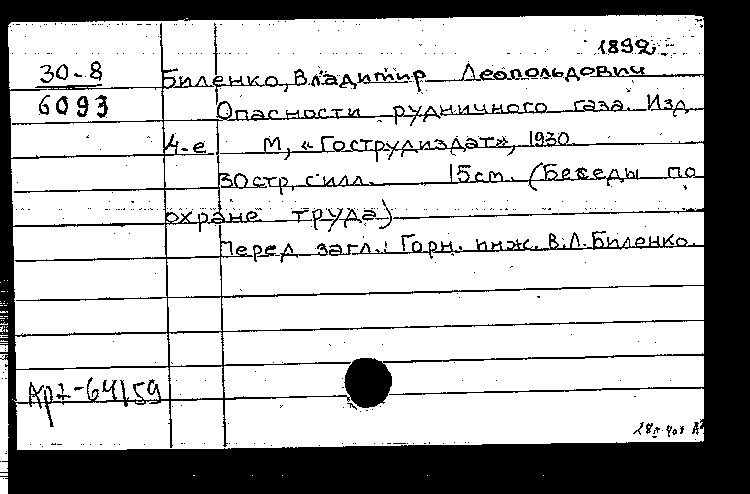 1892-
30-8 Биленко, Владимир Леопольдович
6093 Опасности рудничного газа. Изд
4-е М, «Гострудиздат», 1930.
30стр, с илл. 15см. (Беседы по
охране труда)
Перед загл.: Горн. инж. В.Л. Биленко.
64/59